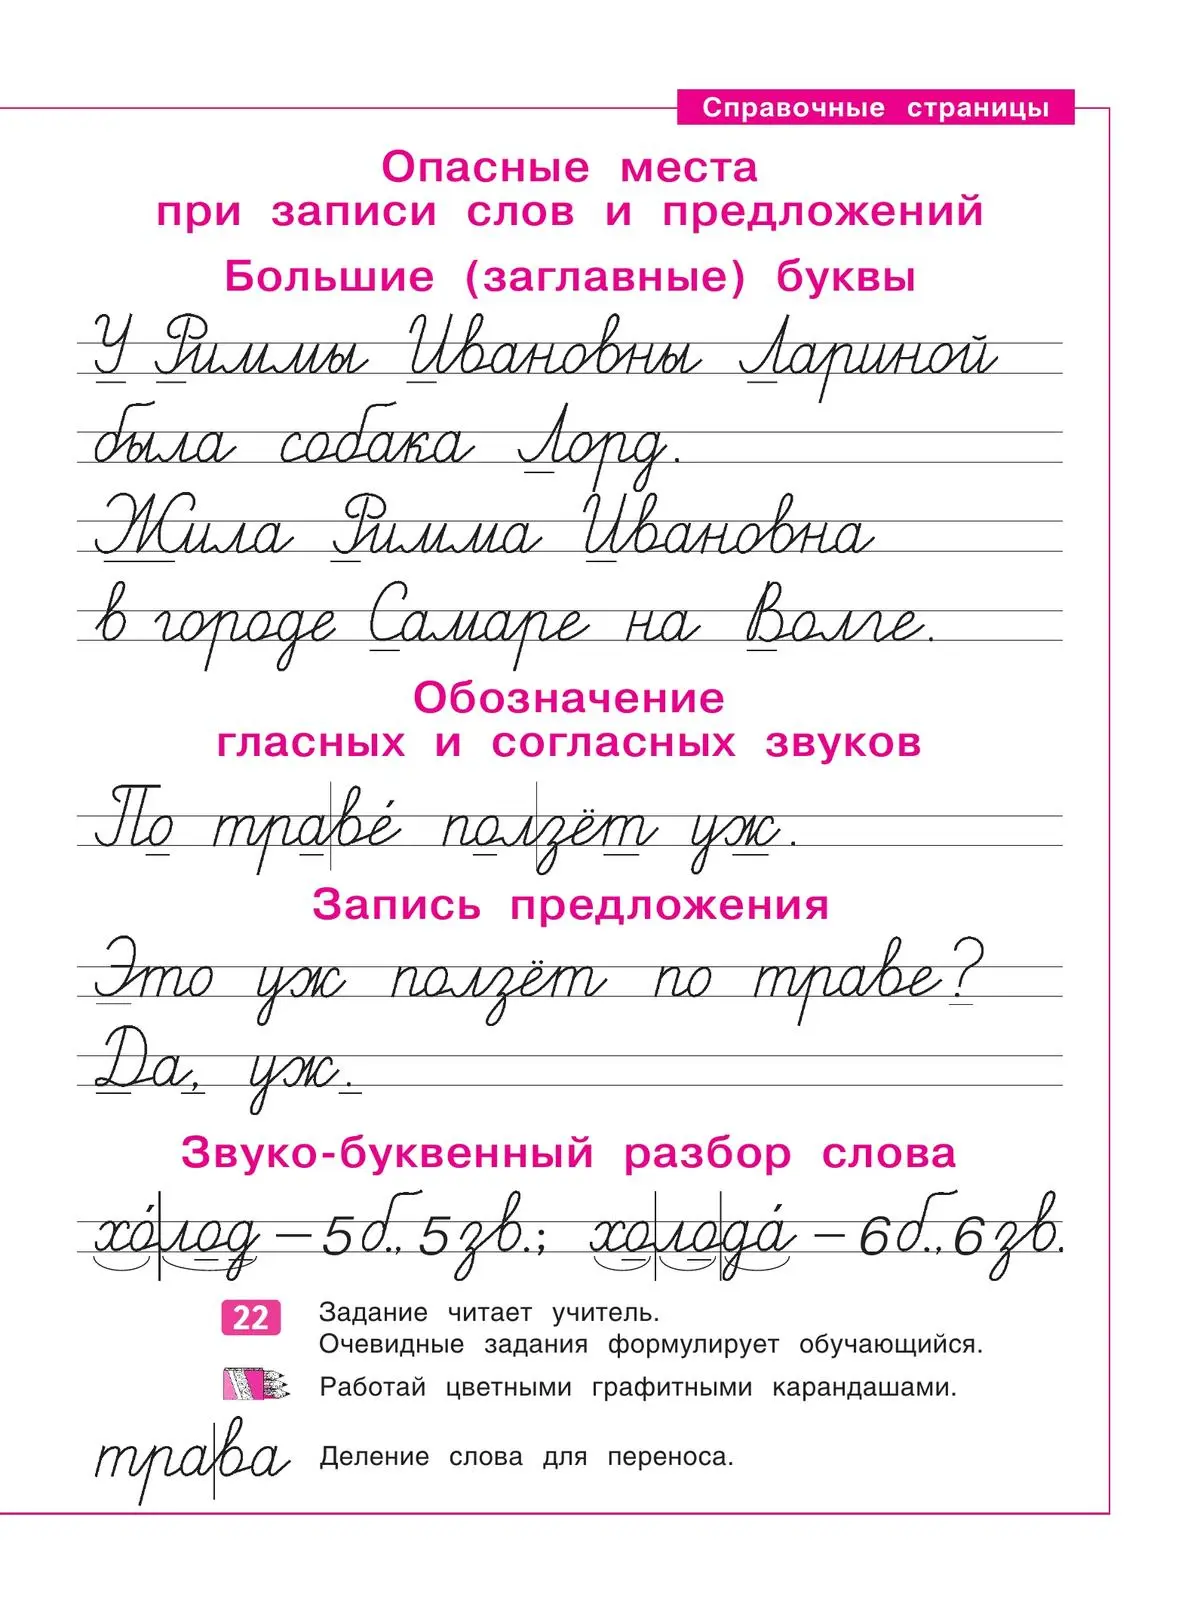 Справочные страницы
Опасные места
при записи слов и предложений
Большие (заглавные) буквы
У Риммы Ивановны Лариной
была собака Лорд.
Жила Римма Ивановна
в городе Самаре на Волге.
Обозначение
гласных и согласных звуков
По тра|ве́ пол|зёт уж.
Запись предложения
Это уж ползёт по траве?
Да, уж.
Звуко-буквенный разбор слова
хо́|лод – 5 б., 5 зв.; хо|ло|да́ – 6 б., 6 зв.
22 Задание читает учитель.
Очевидные задания формулирует обучающийся.
Работай цветными графитными карандашами.
тра|ва Деление слова для переноса.